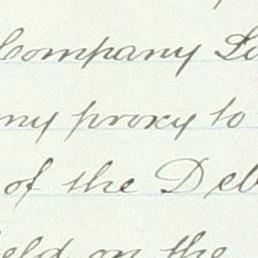 Company
my proxy to
of the Deb
held on the